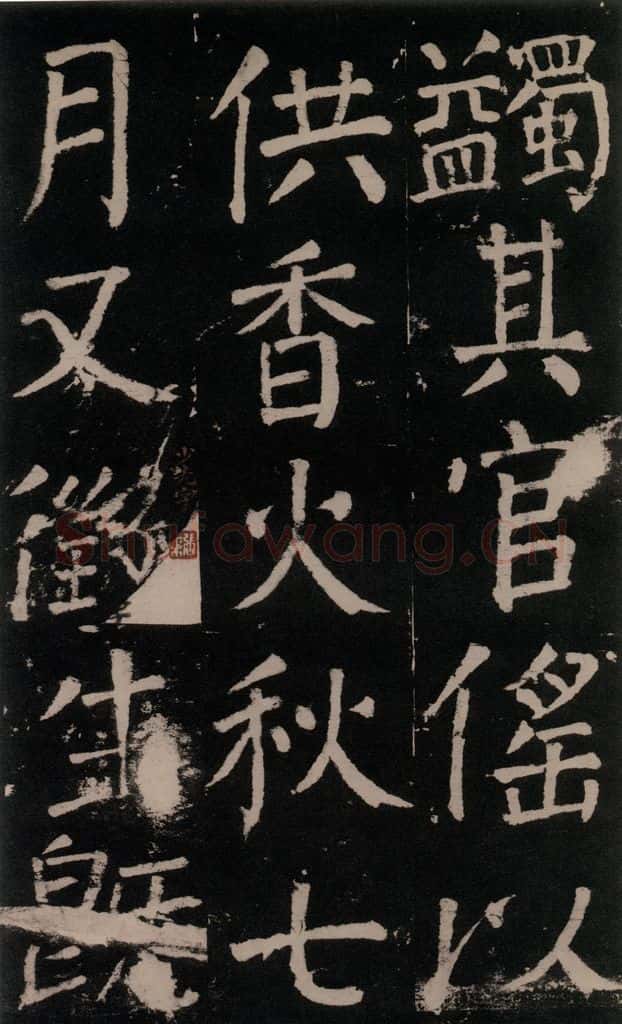 蠲其官傜以
供香火秋七
月又徵生既
Shufawang.CN